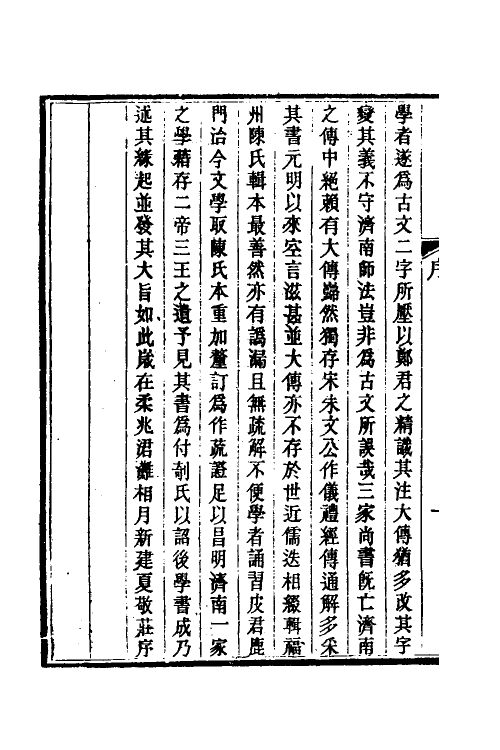 學者遂爲古文二字所壓以鄭君之精識其注大傳猶多改其字
變其義不守濟南師法豈非爲古文所誤哉三家尚書旣亡濟南
之傳中絕賴有大傳巋然獨存宋朱文公作儀禮經傳通解多采
其書元明以來空言滋甚並大傳亦不存於世近儒迭相綴輯福
州陳氏輯本最善然亦有譌漏且無疏解不便學者誦習皮君鹿
門治今文學取陳氏本重加釐訂爲作疏證足以昌明濟南一家
之學藉存二帝三王之遺予見其書爲付剞氏以詔後學書成乃
述其緣起並發其大旨如此歲在柔兆涒灘相月新建夏敬莊序
序
一